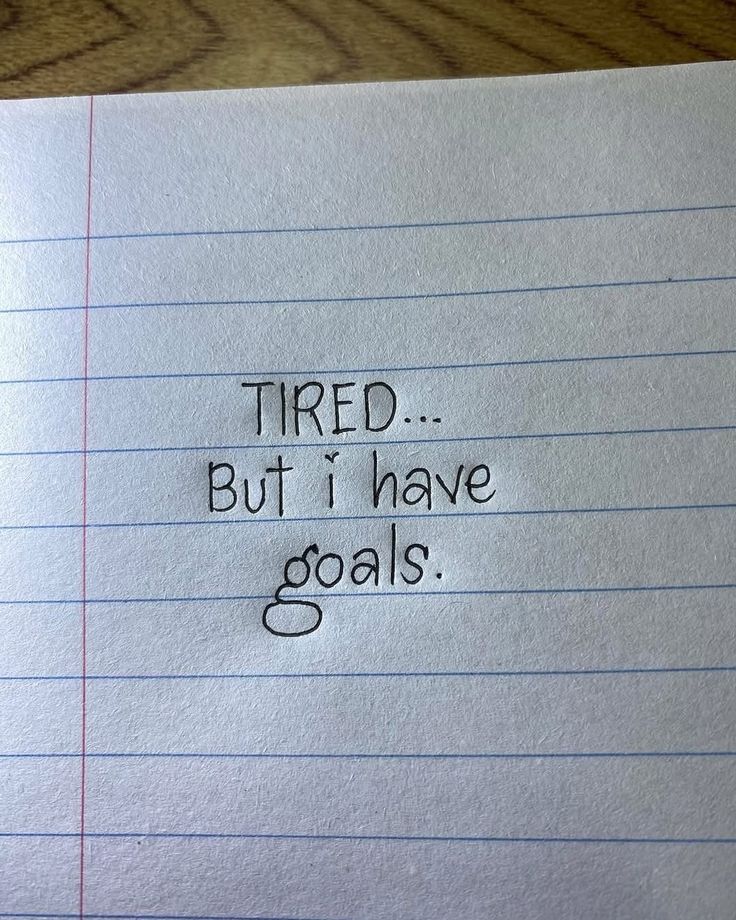 TIRED...
But i have
goals.